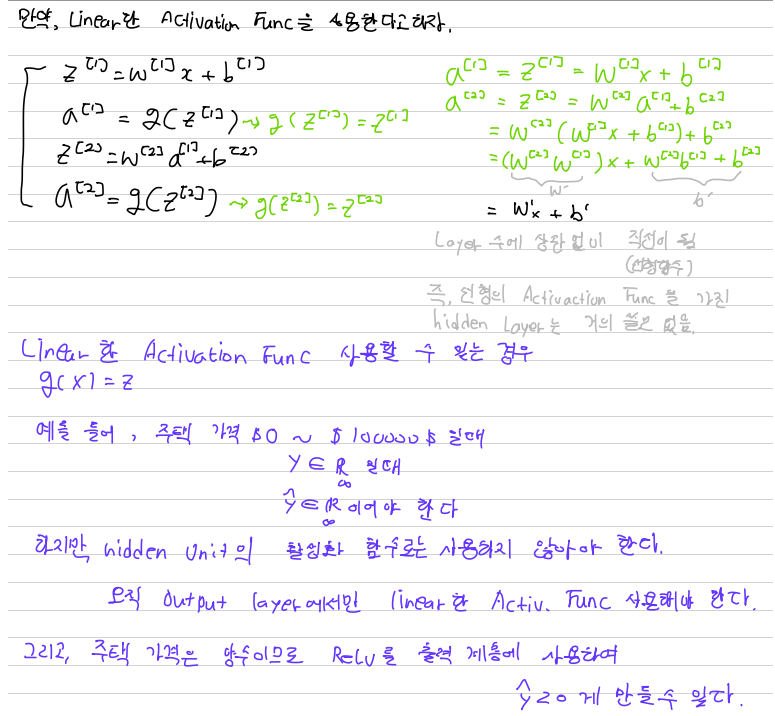 만약, Linear한 Activation Func을 사용한다고하자.
z^[1] = w^[1]x + b^[1]
a^[1] = g(z^[1]) → g(z^[1]) = z^[1]
z^[2] = w^[2]a^[1] + b^[2]
a^[2] = g(z^[2]) → g(z^[2]) = z^[2]
a^[1] = z^[1] = w^[1]x + b^[1]
a^[2] = z^[2] = w^[2]a^[1] + b^[2]
= w^[2](w^[1]x + b^[1]) + b^[2]
= (w^[2]w^[1])x + w^[2]b^[1] + b^[2]
w' b'
= w'x + b'
Layer 수에 상관 없이 직선이 됨
(선형함수)
즉, 선형의 Activaction Func을 가진
hidden Layer는 거의 쓸모 없음.
Linear 한 Activation Func 사용할 수 있는 경우
g(x) = z
예를 들어, 주택 가격 $0 ~ $100000$ 일때
Y ∈ ℝ 일때
∞
ŷ ∈ ℝ 이어야 한다
∞
하지만 hidden Unit의 활성화 함수로는 사용하지 않아야 한다.
오직 Output layer에서만 linear한 Activ. Func 사용해야 한다.
그리고, 주택 가격은 양수이므로 ReLU를 출력 계층에 사용하여
ŷ ≥ 0 게 만들수 있다.